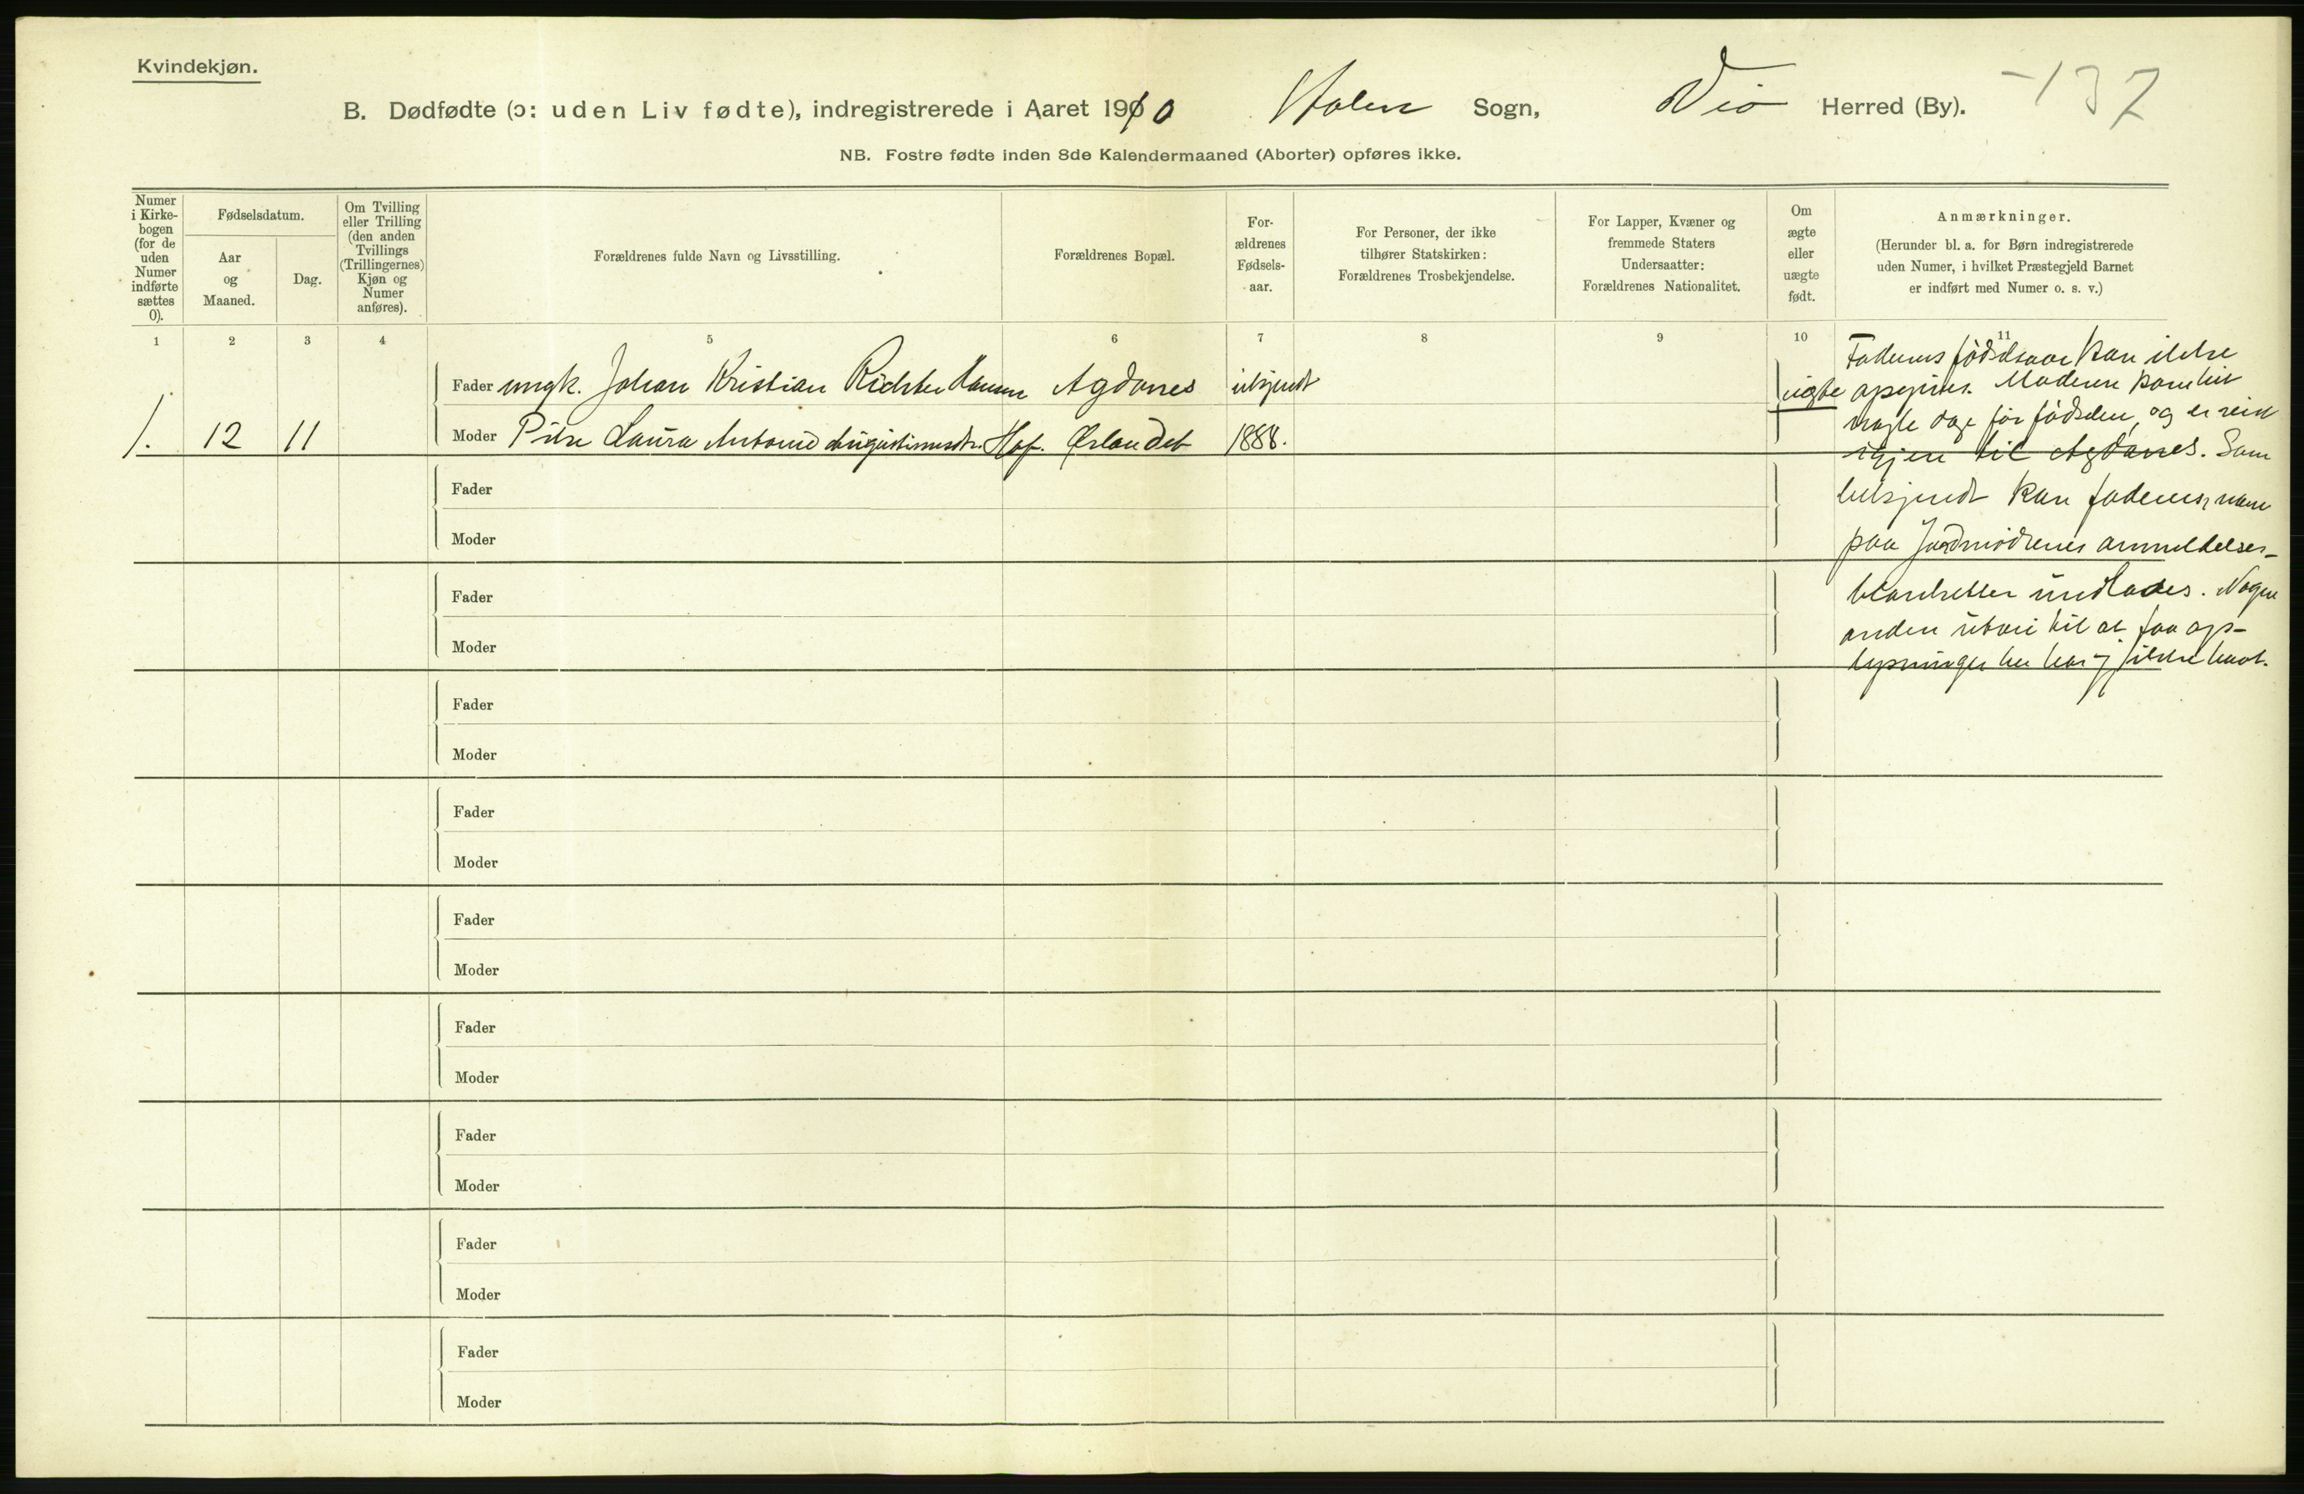 Kvindekjøn.
B. Dødfødte (ɔ: uden Liv fødte), indregistrerede i Aaret 1910 Stolen Sogn, Vio Herred (By). -137
NB. Fostre fødte inden 8de Kalendermaaned (Aborter) opføres ikke.
Numer i Kirke-bogen (for de uden Numer indførte sættes 0).
Fødselsdatum.
Aar og Maaned.
Dag.
Om Tvilling eller Trilling (den anden Tvillings (Trillingernes) Kjøn og Numer anføres).
Forældrenes fulde Navn og Livsstilling.
Forældrenes Bopæl.
For-ældrenes Fødsels-aar.
For Personer, der ikke tilhører Statskirken: Forældrenes Trosbekjendelse.
For Lapper, Kvæner og fremmede Staters Undersaatter: Forældrenes Nationalitet.
Om ægte eller uægte født.
Anmærkninger.
(Herunder bl. a. for Børn indregistrerede uden Numer, i hvilket Præstegjeld Barnet er indført med Numer o. s. v.)
1 2 3 4 5 6 7 8 9 10 11
Fader ungk. Johan Kristian Richter Hansen Agdanes ubkjendt
1. 12 11 Moder Pike Laura Antonie Augustinusdtr. Hof. Ørlandet 1888.
uægte
Faderens fødselsaar kan ikke
opgives. Moderen kom hit
nogle dage før fødselen, og er reist
igjen til Agdanes. Som
bekjendt kan faderens navn
paa Jordmødrenes anmeldelses-
blanketter undlades. Nogen
anden utvei til at faa op-
lysninger her har j ikke havt.
Fader
Moder
Fader
Moder
Fader
Moder
Fader
Moder
Fader
Moder
Fader
Moder
Fader
Moder
Fader
Moder
Fader
Moder